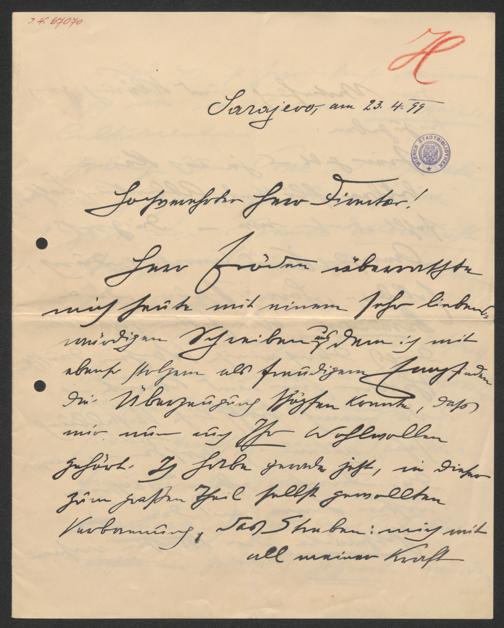 J.N. 67070
H
Sarajevo, am 23.4.99
WIENER STADTBIBLIOTHEK
Hochverehrter Herr Direktor!
Herr Fröden überraschte
mich heute mit einem sehr liebens-
würdigen Schreiben, aus dem ich mit
ebenso stolzem als freudigem Empfinden
die Überzeugung schöpfen konnte, dass
mir nun auch Ihr Wohlwollen
gehört. Ich habe gerade jetzt, in dieser
zum großen Theil selbst gewollten
Verbannung, das Streben: mich mit
all meiner Kraft